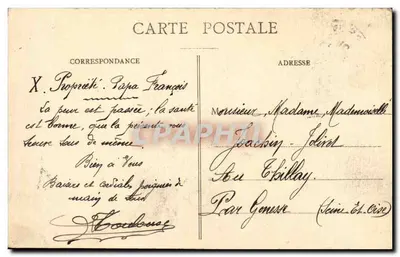 CARTE POSTALE
CORRESPONDANCE
ADRESSE
X. Propriété. Papa François
La peur est passée ; la santé
est bonne, que la présente vous
trouve tous de même
Bien à Vous
Baisers et cordiales poignées de
main de tous
Monsieur, Madame, Mademoiselle
Au Thillay
Par Gonesse (Seine-Et-Oise)